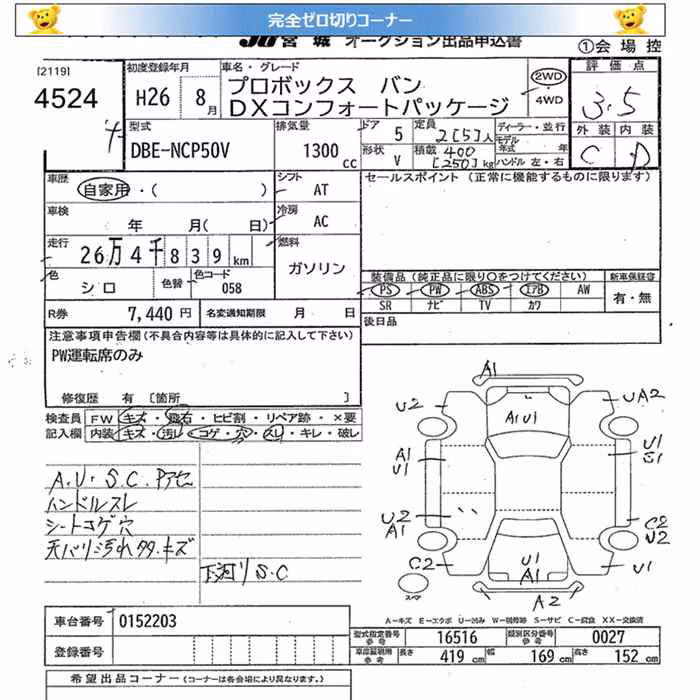 完全ゼロ切りコーナー
JU 宮城 オークション出品申込書
①会場控
[2119]
4524
初度登録年月
H26 8月
車名・グレード
プロボックス バン
DXコンフォートパッケージ
2WD
・4WD
評価点
3.5
外装 内装
C D
型式
DBE-NCP50V
排気量
1300cc
ドア 5
形状 V
定員 2[5]人
積載 400[250]kg
ディーラー・並行
モデル年式 年
ハンドル 左・右
車歴 自家用・( )
シフト AT
セールスポイント (正常に機能するものに限ります)
車検 年 月( 日)
冷房 AC
走行 26万4千839km
燃料 ガソリン
色 シロ 色替 色コード 058
装備品(純正品に限り○をつけてください)
新車保証書
PS PW ABS エアB AW
SR ナビ TV カワ
有・無
R券 7,440円 名変通知期限 月 日
後日品
注意事項申告欄(不具合内容等は具体的に記入して下さい)
PW運転席のみ
修復歴 有 [箇所 ]
検査員 FW キズ・飛石・ヒビ割・リペア跡・×要
記入欄 内装 キズ・汚レ・コゲ・穴・スレ・キレ・破レ
A.U.S.C.Pアセ
ハンドルスレ
シートコゲ穴
天バリ汚れタタ.キズ
下河リS.C
A1
U2
UA2
A1U1
A1
U1
U1
S1
U2
A1
C2
U2
C2
U1
A1
U1
A2
スペア
A－キズ E－エクボ U－凹み W－補修跡 S－サビ C－腐食 XX－交換済
車台番号 0152203
登録番号
型式指定番号 参考 16516 類別区分番号 参考 0027
車庫証明用 参考 長さ 419cm 幅 169cm 高さ 152cm
希望出品コーナー(コーナーは各会場により異なります。)